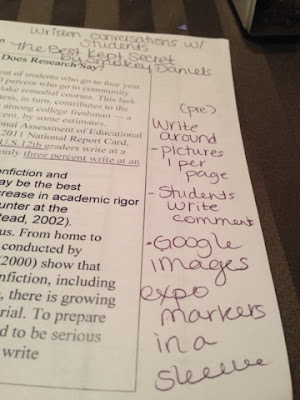 written conversations w/
students
the Best Kept Secret
by Smokey Daniels
Does Research Say?
ent of students who go to four year
percent who go to community
take remedial courses. This lack
ess, in turn, contributes to the
among college freshman — a
cent, by some estimates.
onal Assessment of Educational
2011 National Report Card.
U.S. 12th graders write at a
only three percent write at an
onfiction and
ay be the best
crease in academic rigor
unter at the
tead, 2002).
us. From home to
conducted by
(2000) show that
nfiction, including
, there is growing
rial. To prepare
d to be serious
write
(pre)
Write
around
- pictures
1 per
page
- Students
write
comment
• Google
images
expo
markers
in a
sleeve